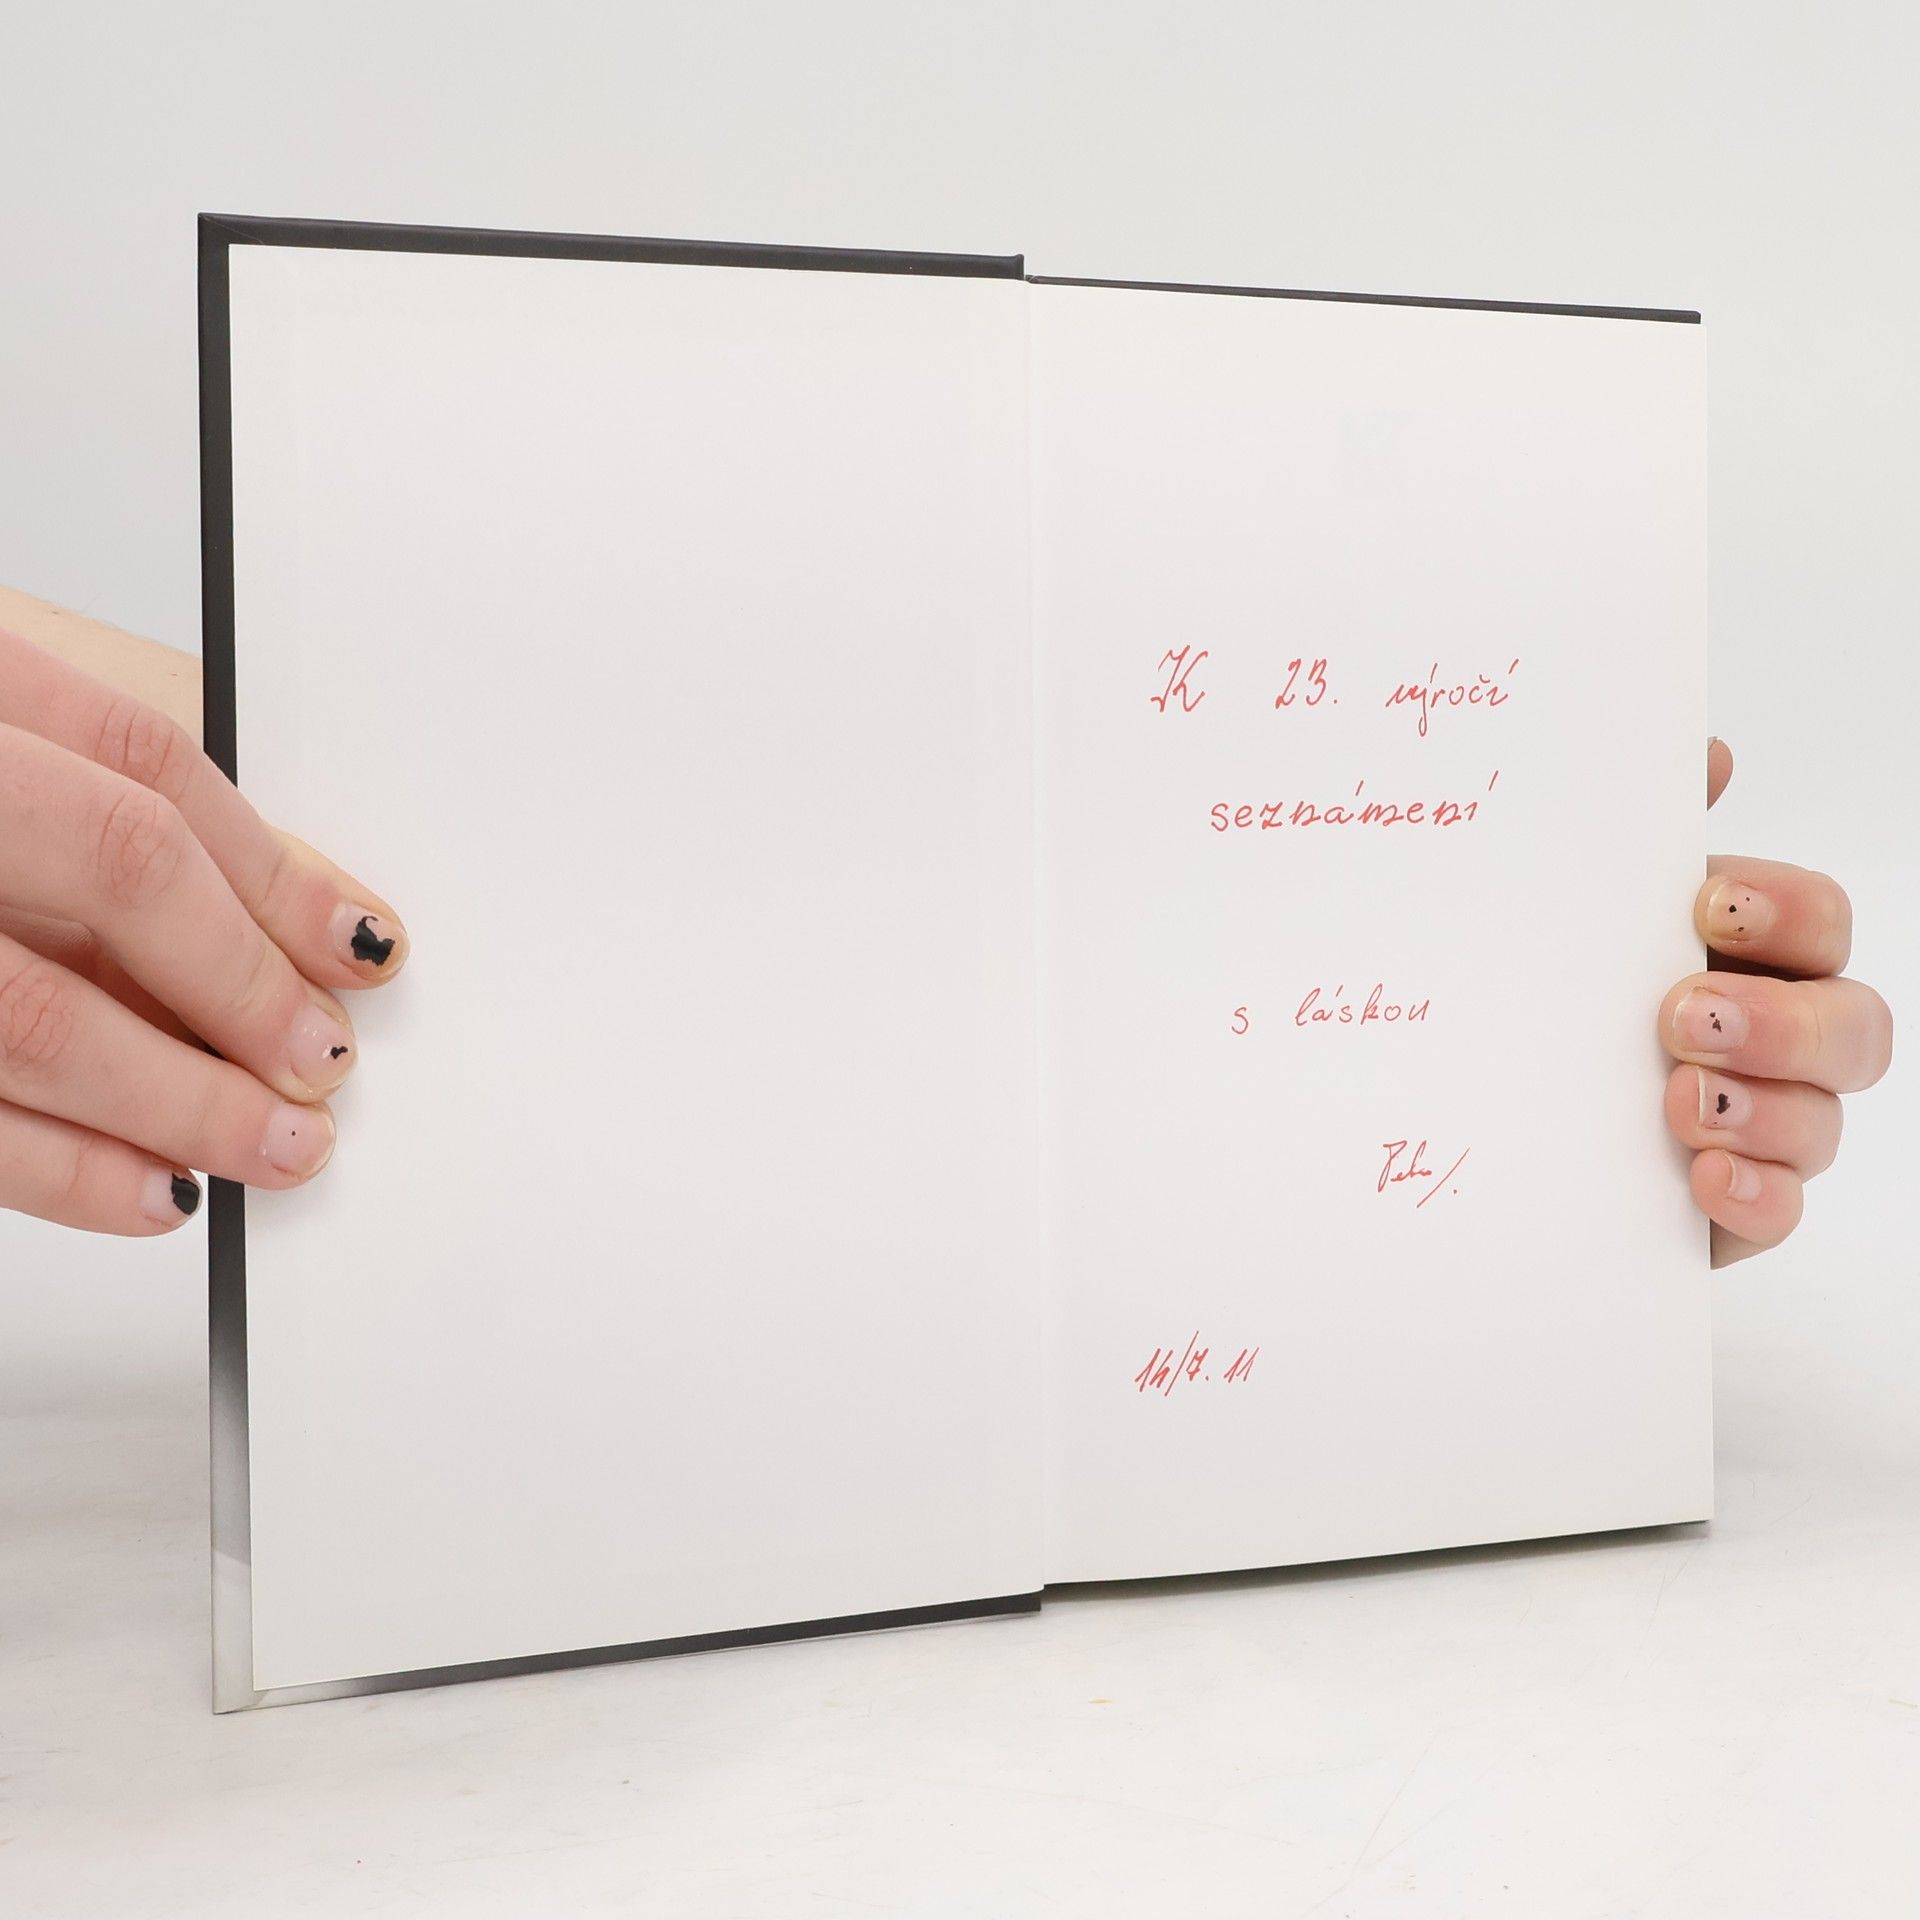 K 23. výročí
seznámení
s láskou
14/7. 11